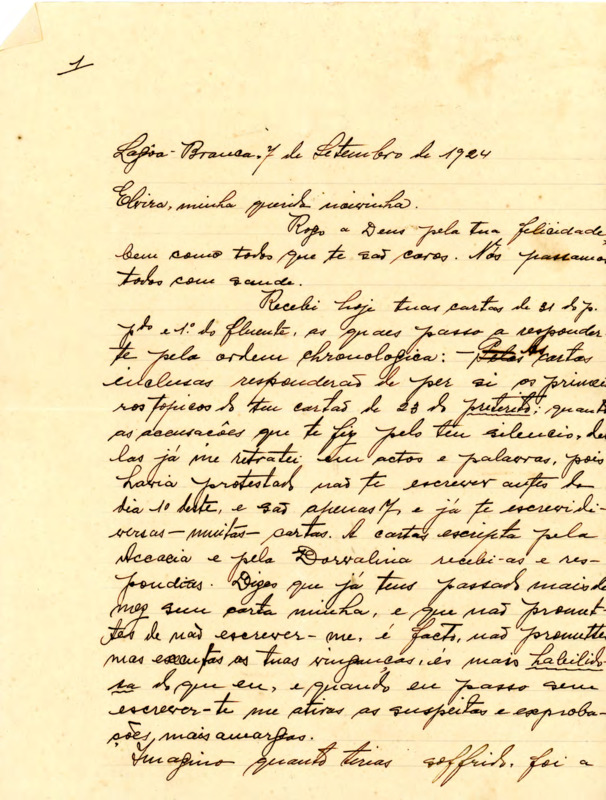 1
Lagôa-Branca, 7 de Setembro de 1924
Elvira, minha querida noivinha.
Rogo a Deus pela tua felicidade,
bem como todos que te são caros. Nós passamos
todos com saude.
Recebi hoje tuas cartas de 31 do p.
pdo e 1º do fluente, as quaes passo a responder-
te pela ordem chronologica: - As cartas
inclusas responderão de per si os primei
ros topicos do teu cartão de 23 do preterito; quanto
as accusacões que te fiz pelo teu silencio, del
las já me retratei em actos e palavras, pois
havia protestado não te escrever antes do
dia 10 deste, e são apenas 7, e já te escrevi di-
versas - muitas - cartas. A cartas escripta pela
Accacia e pela Dorvalina recebi-as e res-
pondias. Dizes que já tens passado mais de
mez sem carta minha, e que não promet-
tes de não escrever-me, é facto, não promettes
mas executas as tuas vinganças, és mais habilido-
sa do que eu, e quando eu passo sem
escrever-te me atiras as suspeitas e exproba-
ções, mais amargas.
Imagino quanto terias soffrido, foi a